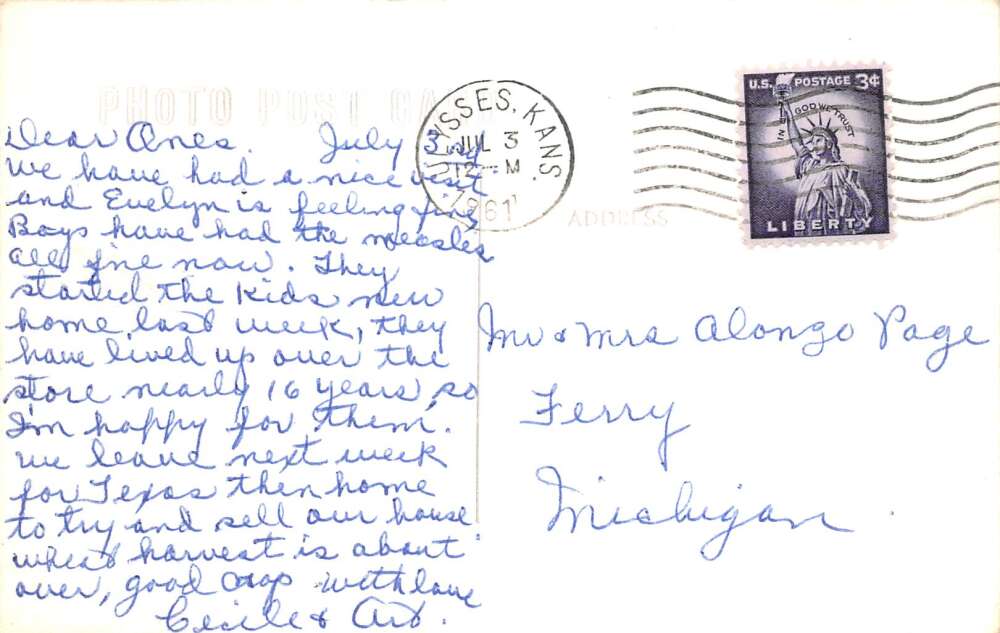 PHOTO POST CARD
Dear Ones. July 3rd
we have had a nice visit
and Evelyn is feeling fine
Boys have had the measles
all fine now. They
started the kids new
home last week, they
have lived up over the
store nearly 16 years, so
I'm happy for them.
we leave next week
for Texas then home
to try and sell our house
wheat harvest is about
over, good crop with love
Cecile & Art.
ULYSSES, KANS.
JUL 3
12 - M
1961
U.S. POSTAGE 3¢
IN GOD WE TRUST
LIBERTY
ADDRESS
Mr & Mrs Alongo Page
Ferry
Michigan.